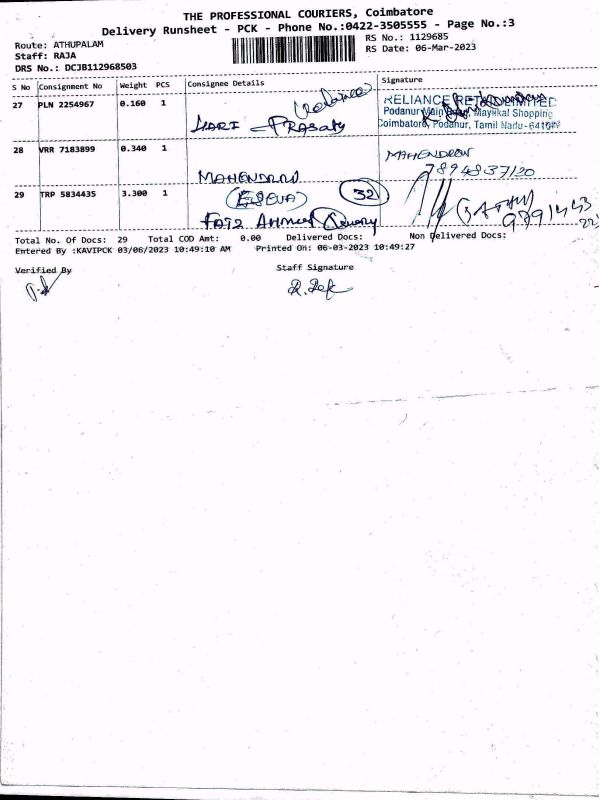 THE PROFESSIONAL COURIERS, Coimbatore
Delivery Runsheet - PCK - Phone No.:0422-3505555 - Page No.:3
Route: ATHUPALAM
RS No.: 1129685
Staff: RAJA
RS Date: 06-Mar-2023
DRS No.: DCJB112968503
S No Consignment No Weight PCS Consignee Details Signature
27 PLN 2254967 0.160 1
(Reliance)
HARI - PRASATH
RELIANCE RETAIL LIMITED
Podanur Main Road, Mayilkal Shopping
Coimbatore, Podanur, Tamil Nadu
28 VRR 7183899 0.340 1
MAHENDRAN
MAHENDRAN
7894837120
29 TRP 5834435 3.300 1
(ESEVA) 32
Ahmed
Total No. Of Docs: 29 Total COD Amt: 0.00 Delivered Docs: Non Delivered Docs:
Entered By :KAVIPCK 03/06/2023 10:49:10 AM Printed On: 06-03-2023 10:49:27
Verified By
Staff Signature